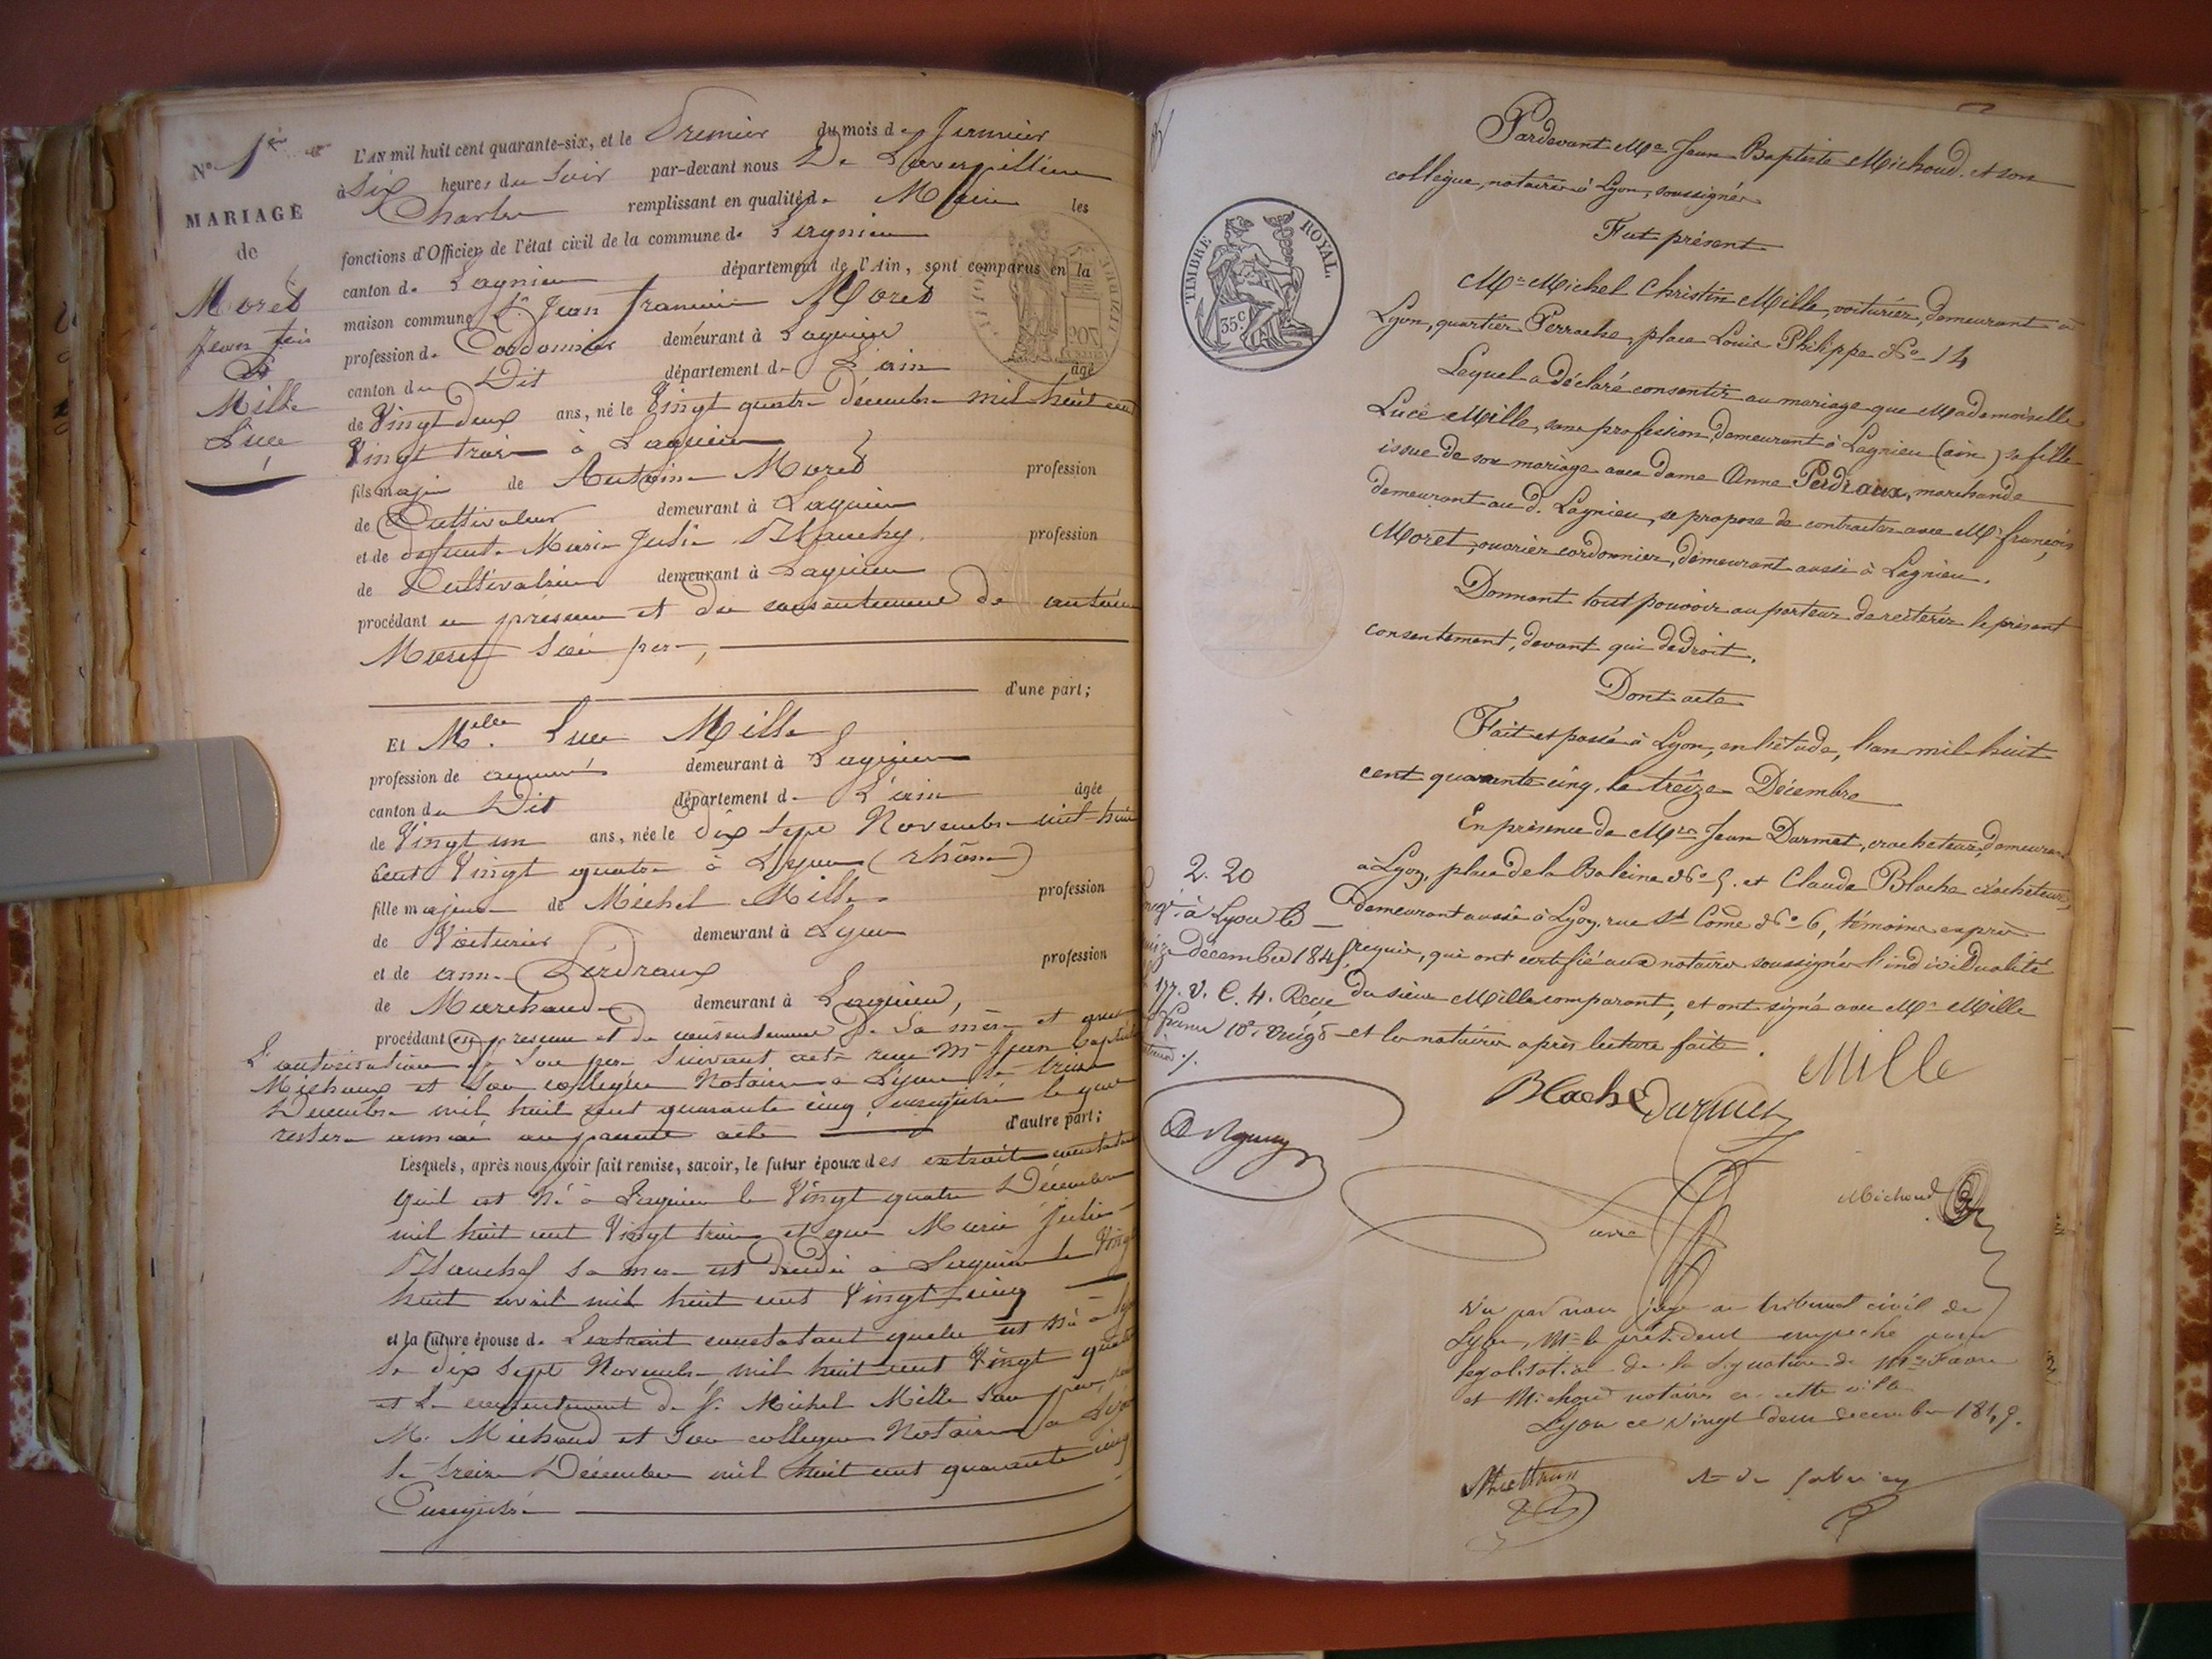 N° 1er
MARIAGE
de
Moret
Jean fçois
et
Mille
Luce
L'AN mil huit cent quarante-six, et le Premier du mois de Janvier
à Six heures du Soir par-devant nous De Laverpillière
Charles remplissant en qualité de Maire les
fonctions d'Officier de l'état civil de la commune de Lagnieu
canton de Lagnieu département de l'Ain, sont comparus en la
maison commune Sr Jean francois Moret
profession de Cordonnier demeurant à Lagnieu
canton du Dit département de L'ain âgé
de Vingt deux ans, né le Vingt quatre décembre mil huit cent
Vingt trois à Lagnieu
fils majeur de Antoine Moret profession
de Cultivateur demeurant à Lagnieu
et de defunte Marie Julie profession
de Cultivatrice demeurant à Lagnieu
procédant en présence et du consentement de antoine
Moret Son pere,
d'une part;
Et Melle Luce Mille
profession de demeurant à Lagnieu
canton du Dit département de L'ain âgée
de Vingt un ans, née le dix Sept Novembre mil huit
Cent Vingt quatre à Lyon (rhône)
fille majeure de Michel Mille profession
de Voiturier demeurant à Lyon
et de anne Perdraux profession
de Marchande demeurant à Lagnieu,
procédant en présence et du consentement de Sa mère et
L'autorisation de Son pere Suivant acte reçu Me Jean baptiste
Michaux et Son collègue Notaires a Lyon le treize
Decembre mil huit cent quarante cinq, enregistré le quel
restera annexé au présent acte d'autre part;
Lesquels, après nous avoir fait remise, savoir, le futur époux des extraits constatant
quil est Né à Lagnieu le Vingt quatre Décembre
mil huit cent Vingt trois et que Marie julie
Sa mere est décédée a Lagnieu le Vingt
huit avril mil huit cent Vingt cinq
et la future épouse de L'extrait constatant quelle est Née a Lyon
le dix Sept Novembre mil huit cent Vingt quatre
et Le consentement de Sr Michel Mille Son pere,
M. Michaud et Son collegue Notaires a Lyon
le treize Décembre mil huit cent quarante cinq
Enregistré
TIMBRE ROYAL.
35c
Pardevant Me Jean Baptiste Michoud et son
collègue, notaires à Lyon, soussignés
Fut présent
Mr Michel Christin Mille, voiturier, demeurant à
Lyon, quartier Perrache, place Louis Philippe No 14
Lequel a déclaré consentir au mariage que Mademoiselle
Luce Mille, sans profession, demeurant à Lagnieu (ain) sa fille
issue de son mariage avec dame Anne Perdraux, marchande
demeurant au d. Lagnieu, se propose de contracter avec Mr françois
Moret, ouvrier cordonnier, demeurant aussi à Lagnieu.
Donnant tout pouvoir au porteur de réitérer le présent
consentement, devant qui de droit.
Dont acte
Fait et passé à Lyon, en l'étude, l'an mil huit
cent quarante cinq, le treize Décembre
En présence de Mrs Jean Darmet, crocheteur, demeurant
à Lyon, place de la Baleine No 5. et Claude Blache crocheteur,
demeurant aussi à Lyon, rue St Come No 6, témoins exprès
requis, qui ont certifié aux notaires soussignés l'individualité
du sieur Mille comparant, et ont signé avec Mr Mille
et les notaires après lecture faite.
2. 20
à Lyon le
décembre 1845
177. V. C. 4. Reçu
Mille
Blache Darmet
Michoud
Vu par nous juge au tribunal civil de
Lyon, Mr le président empeche pour
legalisation de la Signature de Mes Favre
et Michoud notaires en cette ville
Lyon ce Vingt deux decembre 1845.